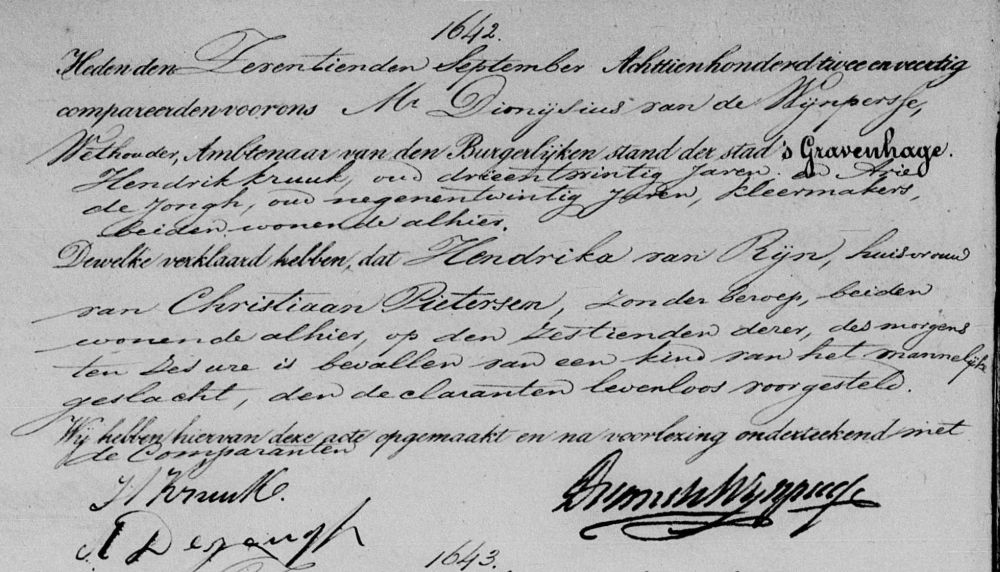 1642.
Heden den Zeventienden September Achttienhonderd twee en veertig
compareerden voor ons Mr Dionysius van de Wijnpersse,
Wethouder, Ambtenaar van den Burgerlijken stand der stad 's Gravenhage.
Hendrik Kruuk, oud drieentwintig Jaren en Arie
de Jongh, oud negenentwintig Jaren, kleermakers,
beiden wonende alhier.
Dewelke verklaard hebben, dat Hendrika van Rijn, huisvrouw
van Christiaan Pietersen, zonder beroep, beiden
wonende alhier, op den zestienden dezer, des morgens
ten zes ure is bevallen van een kind van het mannelijk
geslacht, den declaranten levenloos voorgesteld.
Wij hebben hiervan deze acte opgemaakt en na voorlezing onderteekend met
de Comparanten
H Kruuk.
A De Jongh
1643.